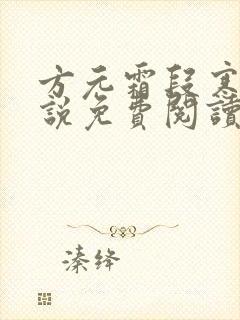 方元霜段寒
說免費閱讀
溱绛